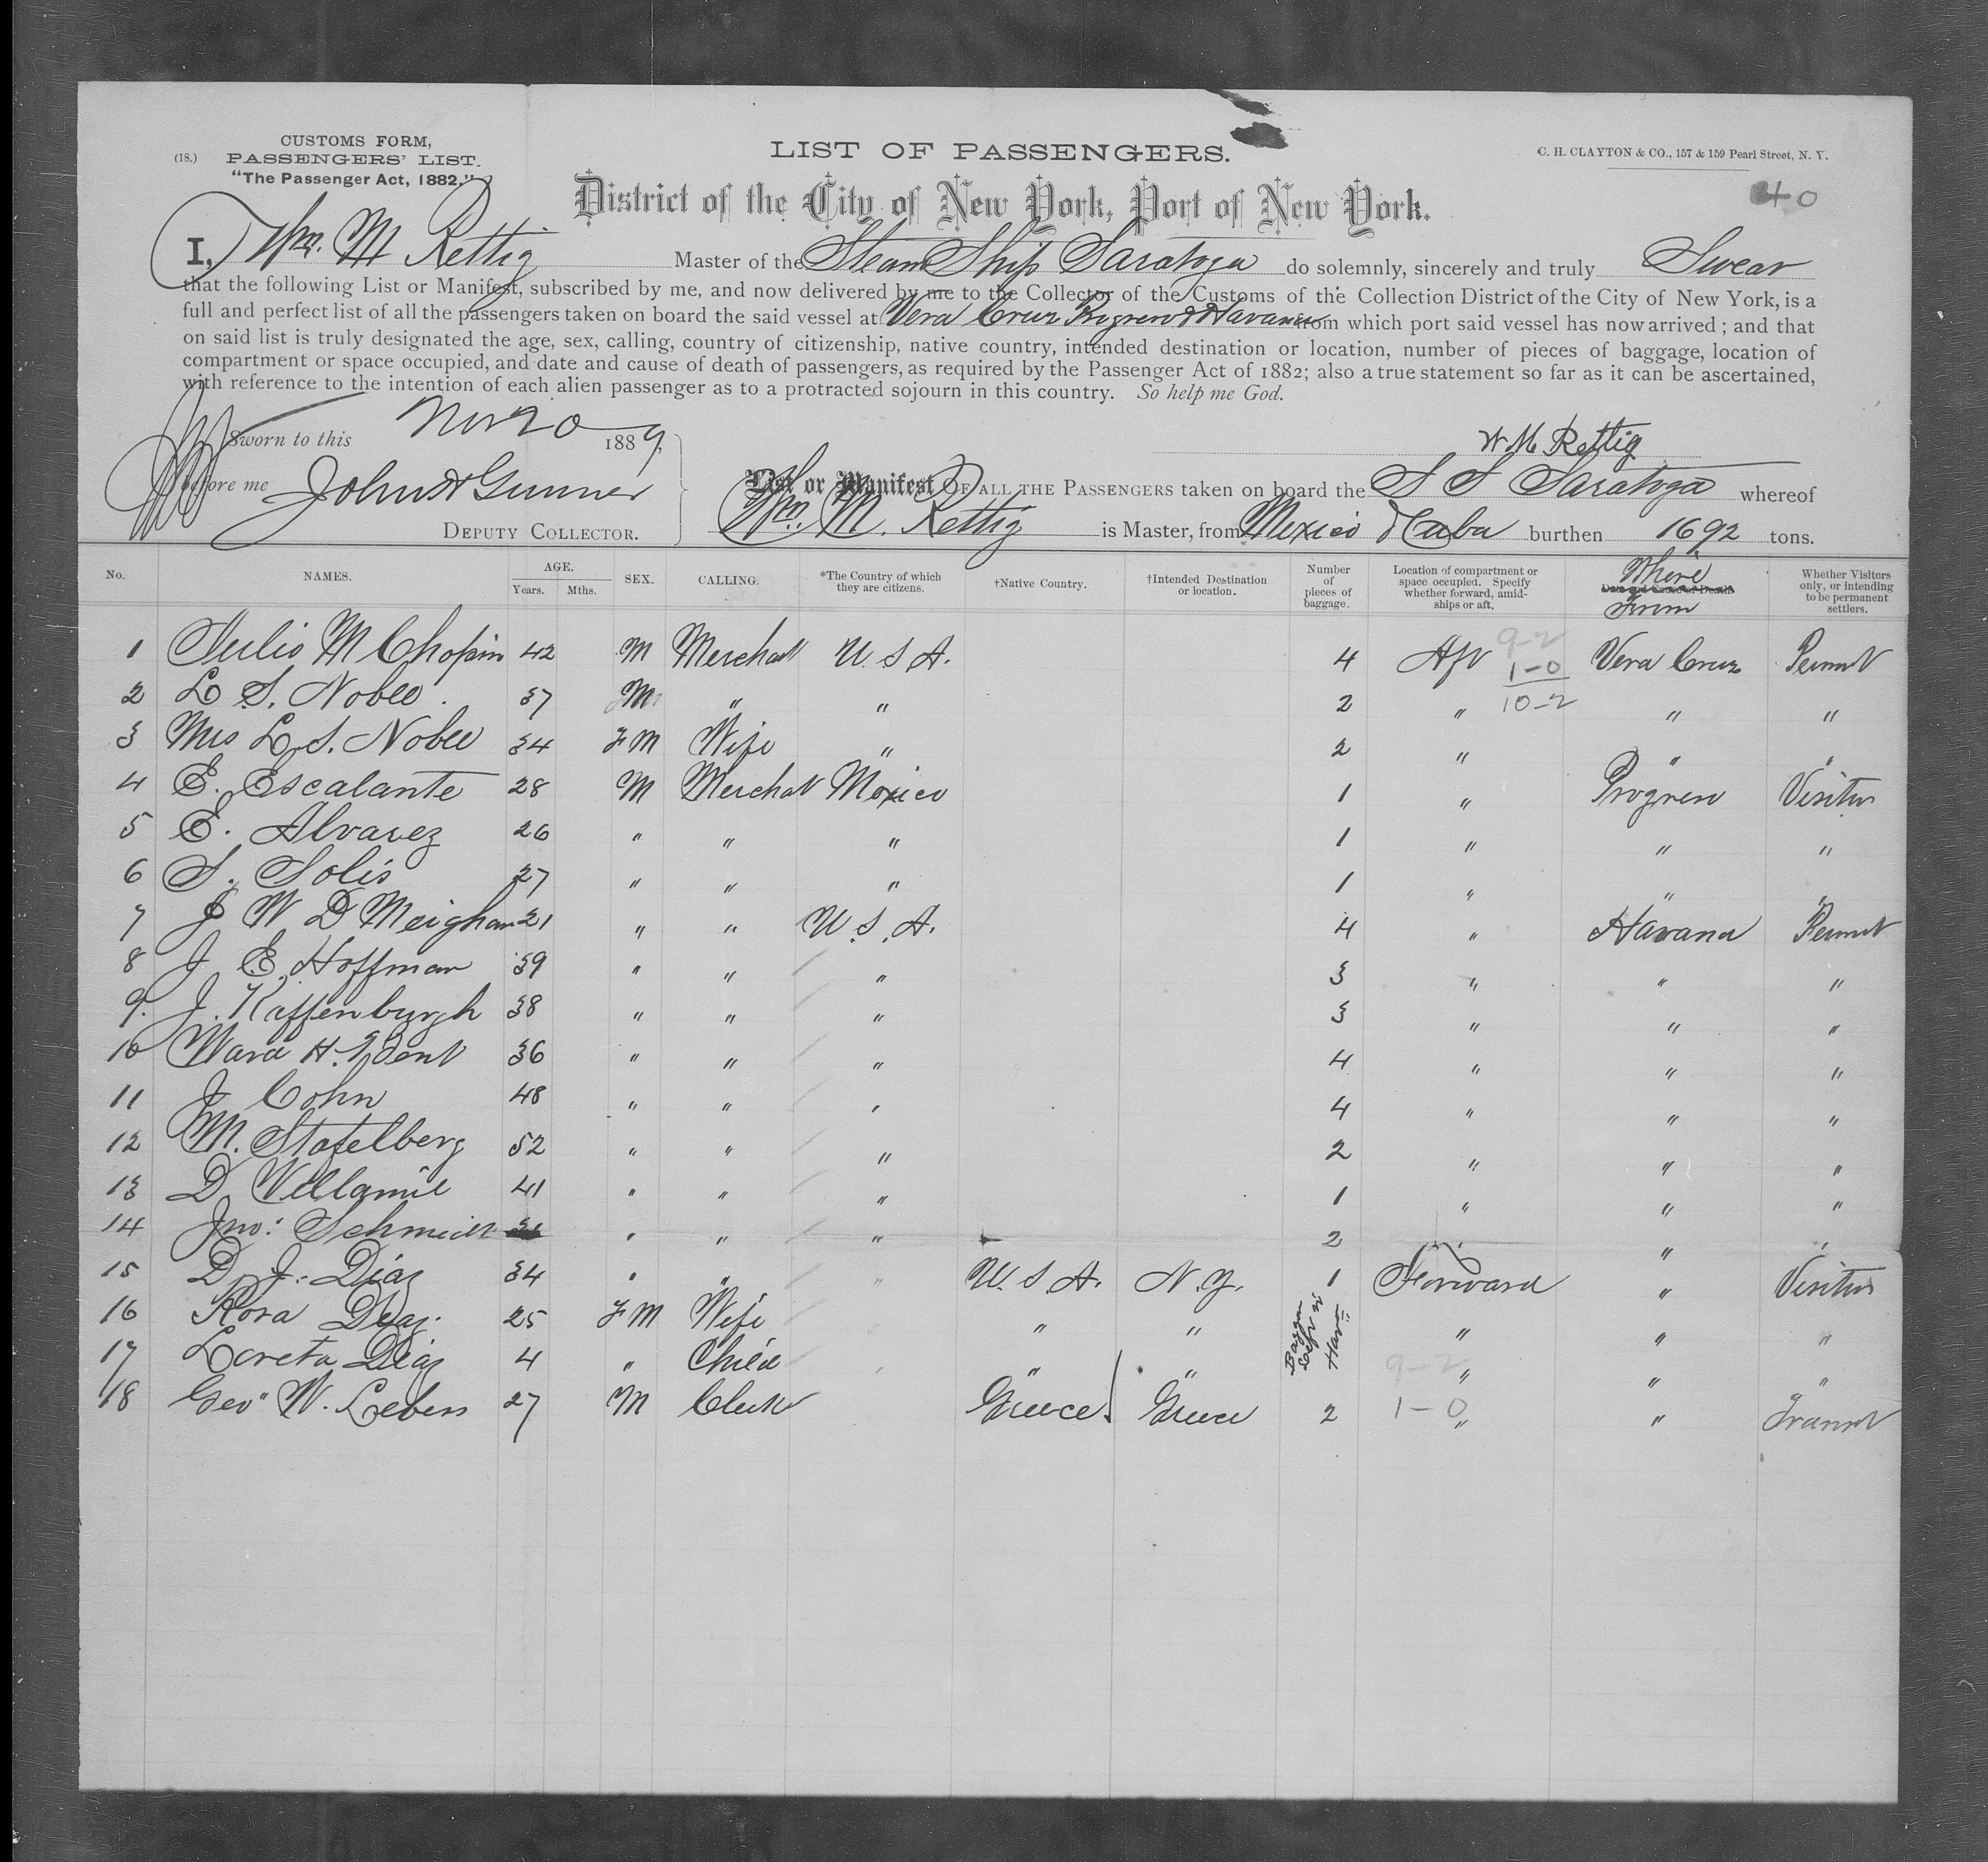 (18.) CUSTOMS FORM,
PASSENGERS' LIST.
"The Passenger Act, 1882."
LIST OF PASSENGERS.
C. H. CLAYTON & CO., 157 & 159 Pearl Street, N. Y.
40
District of the City of New York, Port of New York.
I, Wm. M Rettig Master of the Steam Ship Saratoga do solemnly, sincerely and truly Swear
that the following List or Manifest, subscribed by me, and now delivered by me to the Collector of the Customs of the Collection District of the City of New York, is a
full and perfect list of all the passengers taken on board the said vessel at Vera Cruz Progreso & Havana from which port said vessel has now arrived; and that
on said list is truly designated the age, sex, calling, country of citizenship, native country, intended destination or location, number of pieces of baggage, location of
compartment or space occupied, and date and cause of death of passengers, as required by the Passenger Act of 1882; also a true statement so far as it can be ascertained,
with reference to the intention of each alien passenger as to a protracted sojourn in this country. So help me God.
Sworn to this Nov 20 1889,
W M Rettig
before me John Gunner
DEPUTY COLLECTOR.
List or Manifest OF ALL THE PASSENGERS taken on board the S S Saratoga whereof
Wm. M. Rettig is Master, from Mexico & Cuba burthen 1692 tons.
No. NAMES. AGE. Years. Mths. SEX. CALLING. *The Country of which they are citizens. †Native Country. †Intended Destination or location. Number of pieces of baggage. Location of compartment or space occupied. Specify whether forward, amidships or aft. Date and Cause of Death Where From Whether Visitors only, or intending to be permanent settlers.
9-2
1 Julio M Chopin 42 M Merchant U.S.A. 4 Aft 1-0 Vera Cruz Permnt
2 L. S. Noble 37 M " " 2 " 10-2 " "
3 Mrs L. S. Noble 34 F M Wife " 2 " " "
4 E. Escalante 28 M Merchat Mexico 1 " Progreso Visitor
5 E. Alvarez 26 " " " 1 " " "
6 S. Solis 27 " " " 1 " " "
7 J W D Meighan 21 " " U.S.A. 4 " Havana Permnt
8 J E Hoffman 39 " " " 3 " " "
9. J. Kaffenburgh 38 " " " 3 " " "
10 Ward H. 36 " " " 4 " " "
11 J Cohn 48 " " " 4 " " "
12 M. Statelberg 52 " " " 2 " " "
13 D Villamil 41 " " " 1 " " "
14 Jno: Schmidt " " " 2 " " "
15 D. J. Diaz 34 " " " U.S.A. N.Y. 1 Forward " Visitor
16 Rora Diaz 25 F M Wife " " " " "
17 Loreta Diaz 4 " Child " " " " " "
9-2
18 Geo" W. Lebess 27 M Clerk Greece Greece 2 1-0 " " Transit